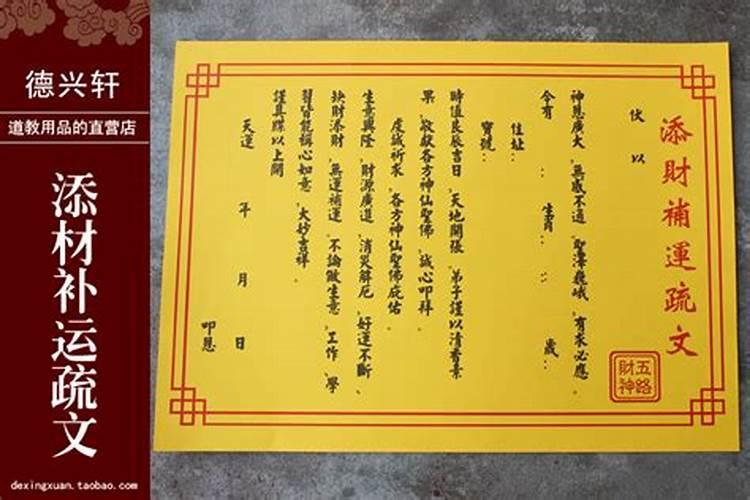 德兴轩
道教用品的直营店
添材补运疏文
dexingxuan.taobao.com
添財補運疏文
五路
財神
伏以
神恩廣大、無感不通、聖澤巍峨、有求必應。
今有：生肖：：歲、
住址：
寶號：
時值良辰吉日、天地開張、弟子謹以清香素
果、敬献各方神仙聖佛、誠心叩拜。
虔誠祈求、各方神仙聖佛庇佑。
生意興隆、財源廣進、消災解厄、好運不斷、
缺財添財、無運補運、不論做生意、工作、學
習皆能稱心如意、大妙吉祥。
謹具牒以上聞
天運 年 月 日
叩恩